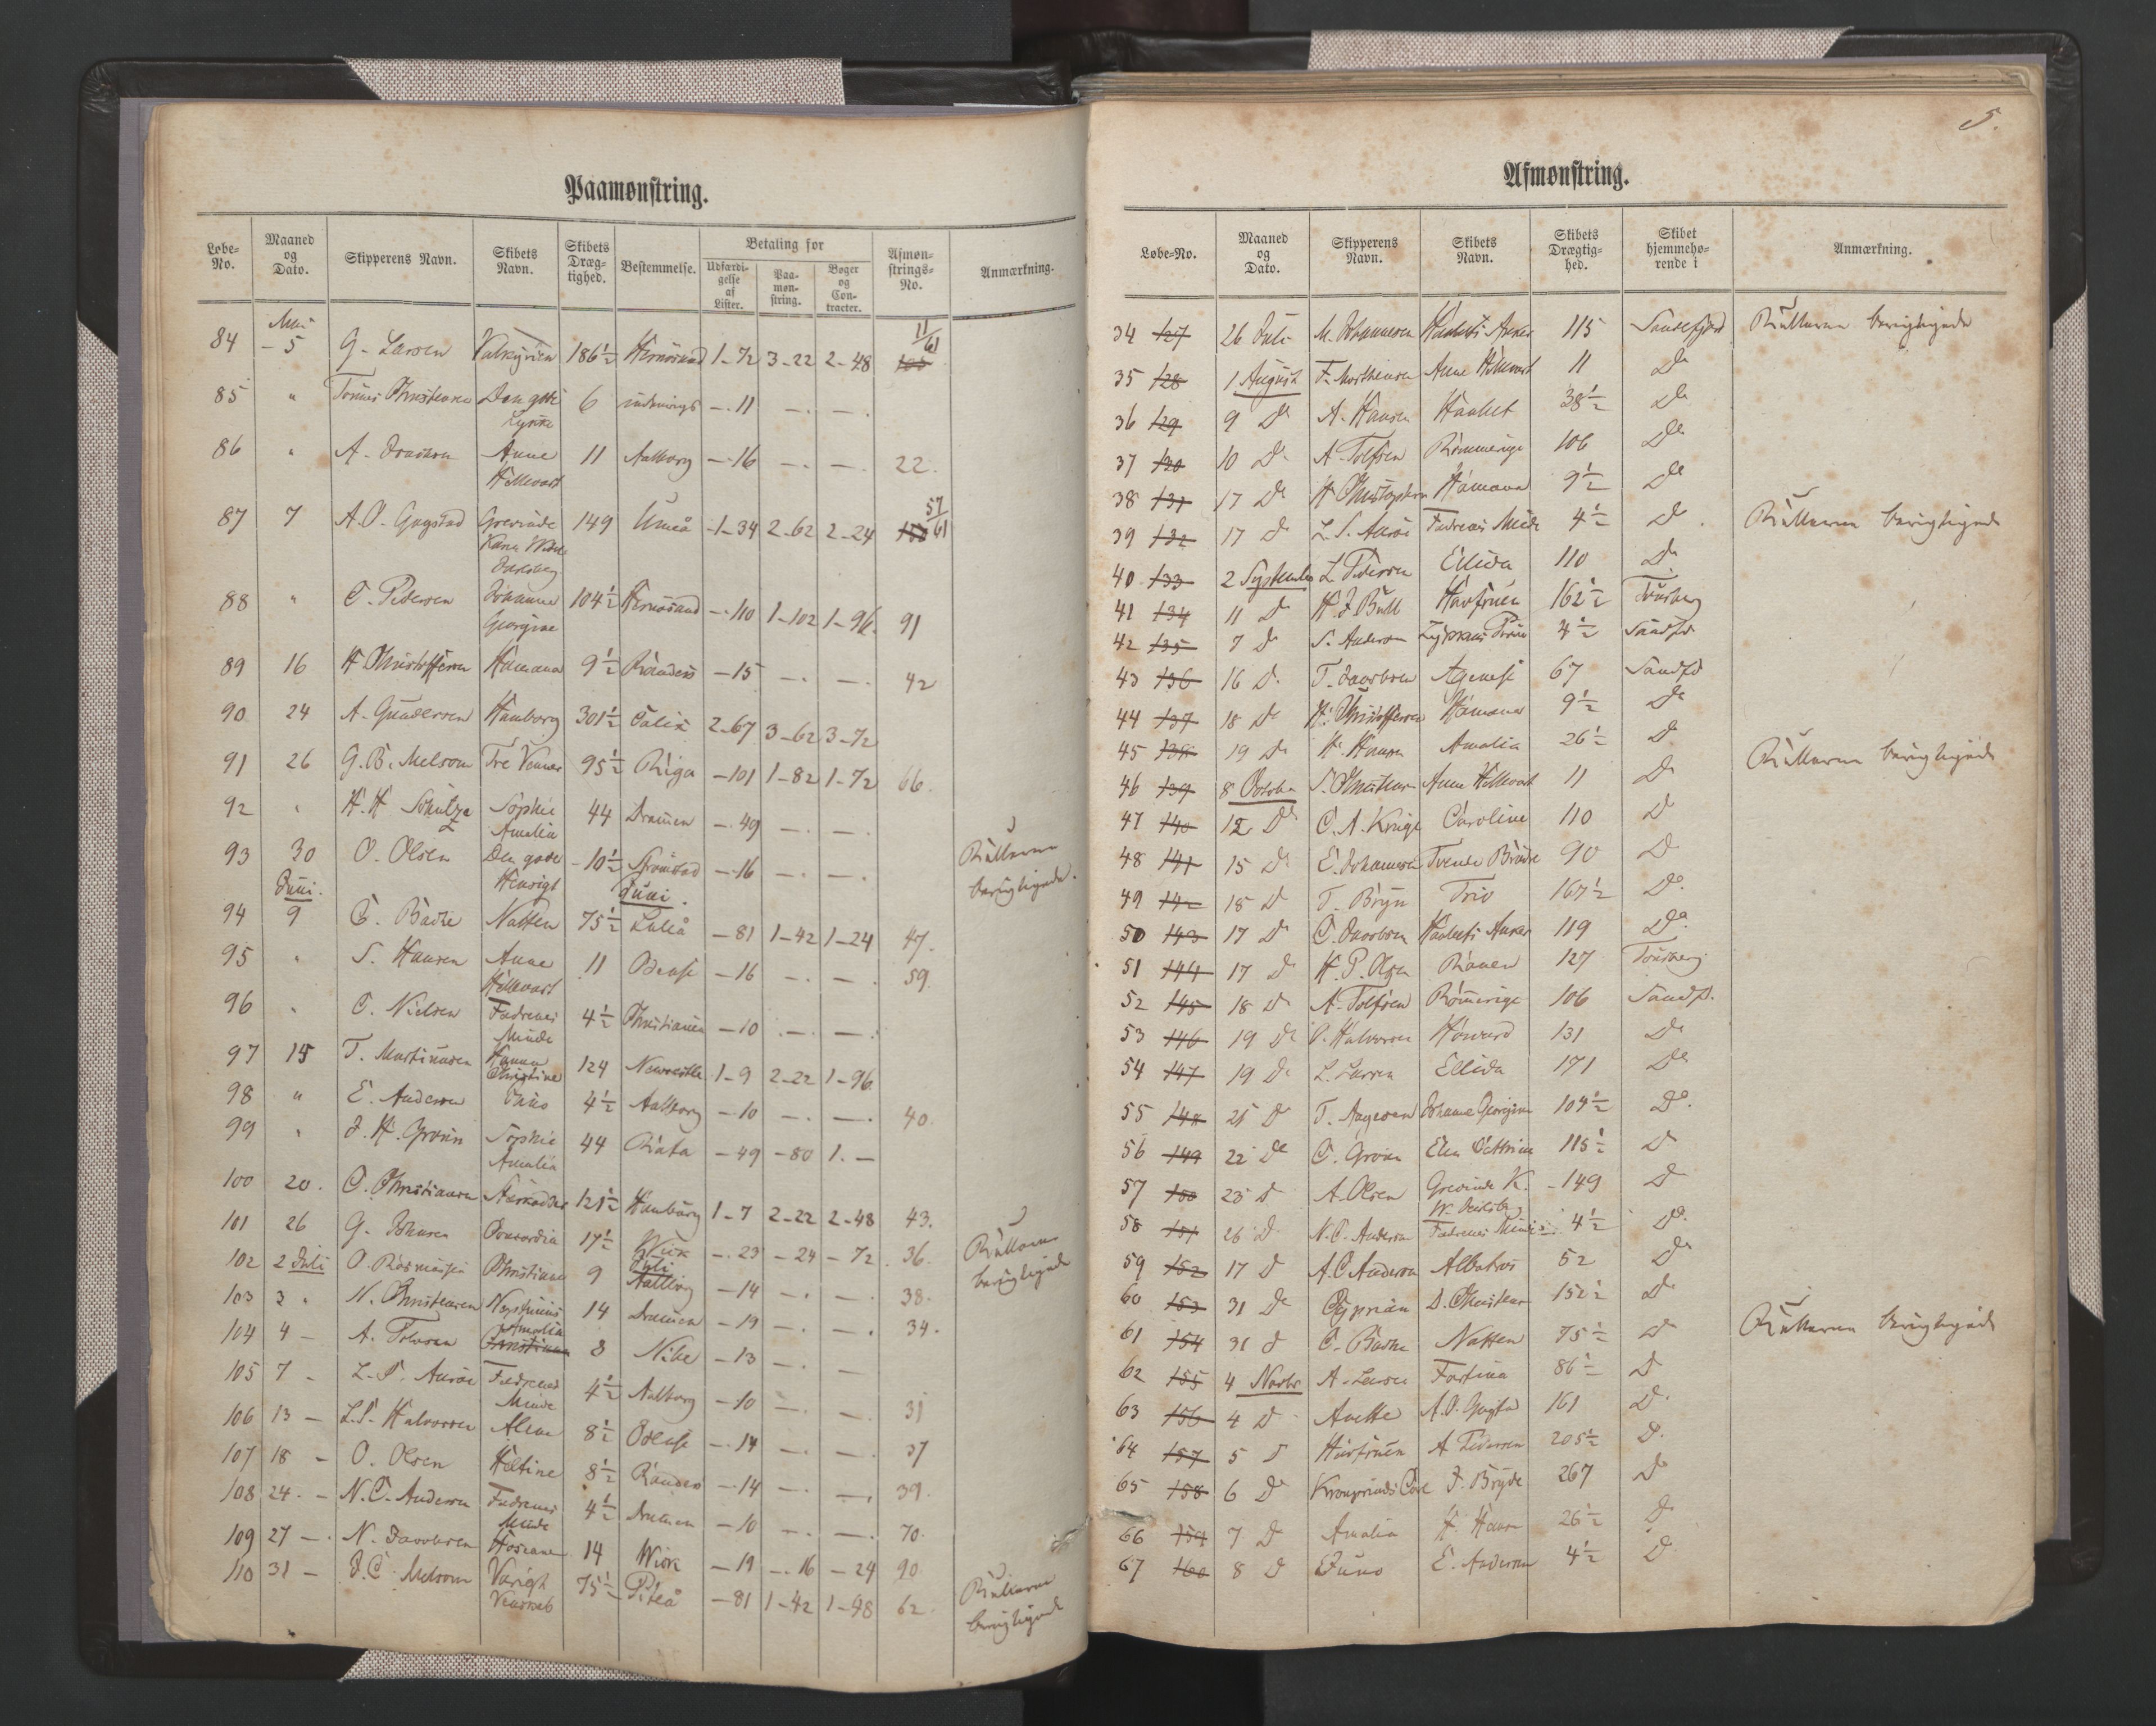 Paamønstring.
Løbe-No. Maaned og Dato. Skipperens Navn. Skibets Navn. Skibets Drægtighed. Bestemmelse. Betaling for Udfærdigelse af Lister. Paamønstring. Bøger og Contracter. Afmønstrings-No. Anmærkning.
84 Mai – 5 G. Larsen Valkyrien 186½ Hernösand 1-72 3-22 2-48 11/61
85 " Christensen Den gode Lykke 6 – 11 – . – .
86 " A. Anne Hellevart 11 Aalborg – 16 – . – . 22.
87 7 A.O. Gogstad Grevinde 149 Umeå 1-34 2-62 2-24 57/61
88 " C. Pedersen Johanne Georgine 104½ Hernösand – 110 1-102 1-96. 91
89 16 H Christoffersen Hamana 9½ Randers – 15 – . – . 42
90. 24 A. Gundersen Hamborg 301½ Calix 2-67 3-62 3-72
91 26 G.B. Melsom Tre Venner 95½ Riga – 101 1-82 1-72 66.
92 " H.H. Schultze Sophie Amalia 44 Dramen – 49 – . – .
93 30 O. Olsen Den gode Hensigt 10½ Strömstad – 16 – . – . Rullerne berigtigede.
Juni. Juni.
94 9 C. Bache Natten 75½ Luleå – 81 1-42 1-24 47.
95 " S. Hansen Anne Hellevart 11 Odense – 16 – . – . 59.
96 " C. Nielsen Fædrenes Minde 4½ Christiania – 10 – . – .
97 15 T. Martinusen Hanna Christine 124 Newcastle 1-9 2-22 1-96
98 " E. Andersen Juno 4½ Aalborg – 10 – . – . 40.
99 " J.H. Grøon Sophie Amalia 44 – 49 – 80 1. –
100 20. C. Christiansen 121½ Hamburg 1-7 2-22 2-48 43.
101 26 G. Johnsen Concordia 17½ Wisk – 23 – 24 – 72 36. Rullerne berigtigede
Juli
102 2 Juli O. Rasmussen Christiane 9 Aalborg – 14 – . – . 38.
103 3 " N. Christensen Neptunus 14 Dramen – 19 – . – . 34.
104 4 – A. Amalia 8 Nibe – 13 – . –
105 7 – L.S. Fædrenes Minde 4½ Aalborg – 10 – . – . 31
106 13 – L.S. Halvorsen Alma 8½ Odense – 14 – . – . 37
107 18 – O. Olsen Heltine 8½ Randers – 14 – . – . 39.
108 24. – N.C. Andersen Fædrenes Minde 4½ Dramen – 10 – . – . 70.
109 27 – . N. Jacobsen Hosianna 14 Wisk – 19 – 16 – 24 90
110 31 – J.C. Melsom Varigt Venskab 75½ Piteå – 81 1-42 1-48 62. Rullerne berigtigede
5.
Afmønstring.
Løbe-No. Maaned og Dato. Skipperens Navn. Skibets Navn. Skibets Drægtighed. Skibet hjemmehørende i Anmærkning.
34 127 26 Juli M. Johannesen Haabets Anker 115 Sandefjord Rullerne berigtigede
35 128 1 August F. Mathiesen Anne Hellevart 11 Do
36 129 9 Do A. Hansen Haabet 38½ Do
37 130 10 Do A. Tolfsen Rommerige 106 Do
38 131 17 Do H Christophersen Hamana 9½ Do
39 132 17 Do L.S. Fædrenes Minde 4½ Do Rullerne berigtigede
40 133 2 September L. Pedersen Ellida 110 Do
41 134 11 Do H.J Bull Havfruen 162½ Tønsberg
42 135 7 Do S. Andersen 4½ Sandfd
43 136 16 Do T. Jacobsen Agenese 67 Sandfd
44 137 18 Do H. Christoffersen Hamana 9½ Do
45 138 19 Do H. Hansen Amalia 26½ Do Rullerne berigtigede
46 139 8 October S. Christensen Anne Hellevart 11 Do
47 140 12 Do C.A. Krüge Caroline 110 Do
48 141 15 Do E. Johannesen Tvende Brødre 90 Do
49 142 15 Do T. Bryn Trio 167½ Do.
50 143 17 Do C. Jacobsen Haabets Anker 119 Do.
51 144 17 Do H.P. Olsen Ranen 127 Tønsberg
52 145 18 Do A. Tolfsen Rommerige 106 Sandfd.
53 146 19 Do O. Halvorsen Howard 131 Do
54 147 19 Do L. Larsen Ellida 171 Do
55 148 21 Do T. Aagesen Johanne Georgine 104½ Do.
56 149 22 Do C. Grøon Elen Cathrine 115½ Do
57 150 23 Do A. Olsen Grevinde K. W. Jarlsberg 149 Do
58 151 26 Do N.C. Andersen Fædrenes Minde 4½ Do.
59 152 17 Do A.C Andersen Albatros 52 Do
60 153 31 Do Cyprian D. Christensen 152½ Do
61 154 31 Do C. Bache Natten 75½ Do Rullerne berigtigede
62 155 4 Novbr A. Larsen Fortuna 86½ Do
63 156 4 Do Anette A.O. Gogstad 161 Do
64 157 5 Do Havfruen A Pedersen 205½ Do.
65 158 6 Do Kronprinds Carl J. Bryde 267 Do
66 159 7 Do Amalia H. Hansen 26½ Do
67 160 8 Do Juno E. Andersen 4½ Do